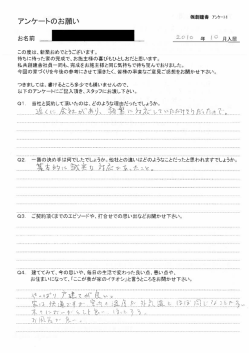 ㈱創建舎 アンケート
アンケートのお願い
お名前
2010 年 10 月入居
この度は、新居おめでとうございます。
待ちに待った家の完成で、お施主様の喜びもひとしおだと思います。
私共創建舎社員一同も、完成をお施主様と同じ気持ちで待ち望んでおりました。
今回の家づくりを今後の参考にさせて頂きたく、皆様の率直なご意見ご感想をお聞かせ下さい。
つきましては、書けるところを少しでも構いませんので、
以下のアンケートにご記入頂き、スタッフにお渡し下さい。
Q1 当社と契約して頂いたのは、どのような理由だったのでしょうか。
近くに会社があり、誠実に対応していただけそうだしたので。
Q2. 一番の決め手は何でしたでしょうか。他社との違いはどのようなことだったと思われますでしょうか。
基本的に誠実な対応であったこと。
Q3 ご契約頂くまでのエピソードや、打合せでの思い出などお聞かせ下さい。
Q4. 建ててみて、今の思いや、毎日の生活で変わった良い点、悪い点や、
お住まいになって、「ここが我が家のイチオシ」と言うところをお聞かせ下さい。
やっぱり戸建てが良い。